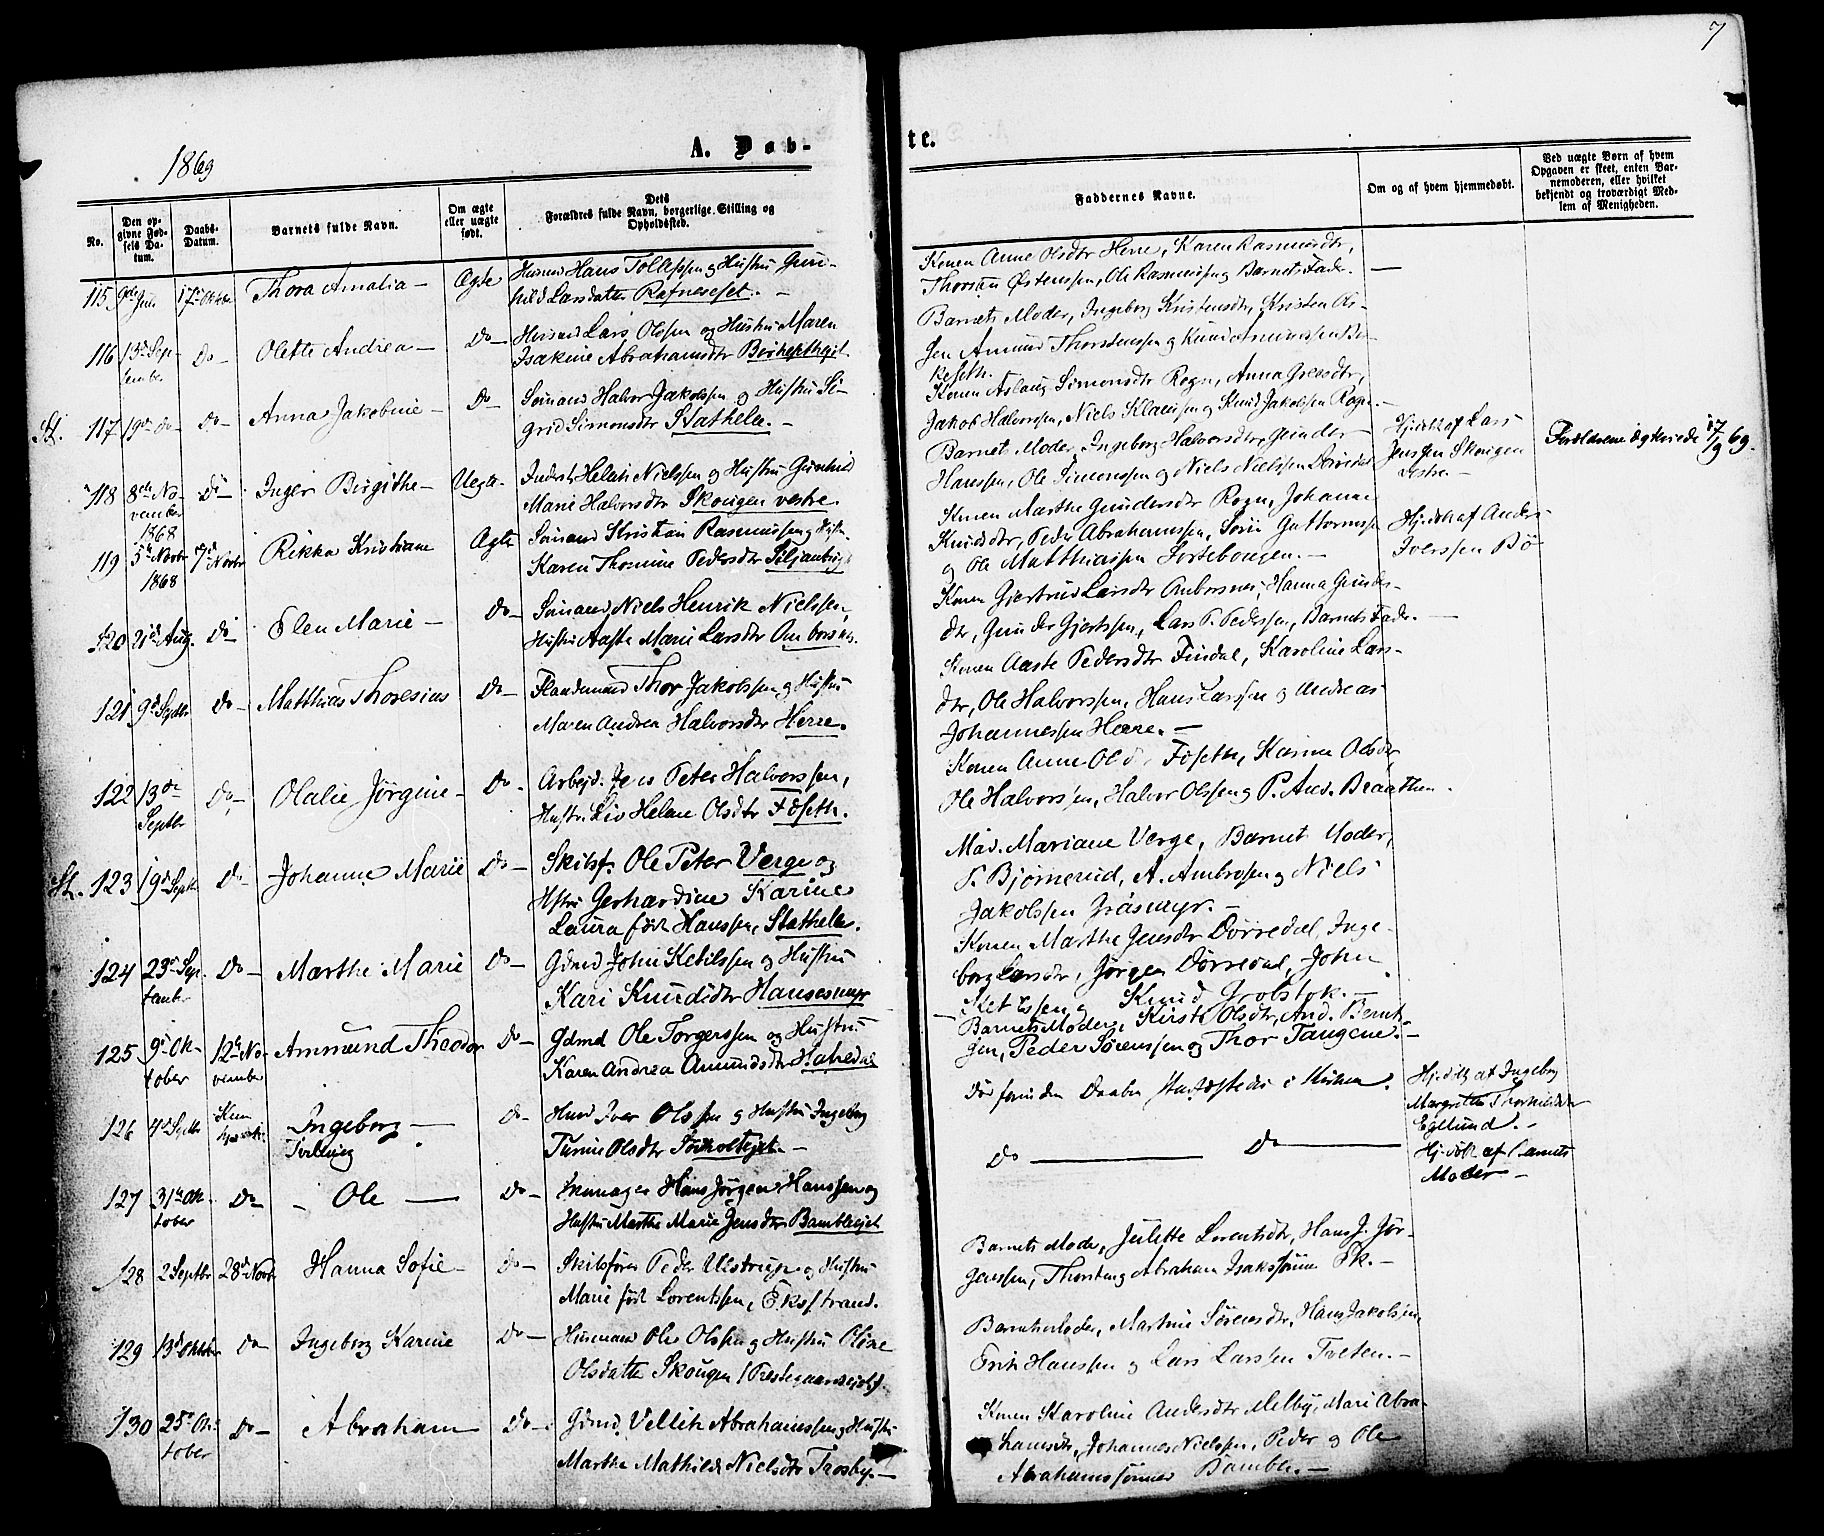 7
1869
A. Døb-
te.
No.
Den opgivne Fødsels Datum.
Daabs-Datum.
Barnets fulde Navn.
Om ægte eller uægte født.
Dets Forældres fulde Navn, borgerlige Stilling og Opholdssted.
Faddernes Navne.
Om og af hvem hjemmedøbt.
Ved uægte Børn af hvem Opgaven er skeet, enten Barnemoderen, eller hvilket bekjendt og troværdigt Medlem af Menigheden.
115. 17de Oktbr Thora Amalia — Ægte
Husmd Hans Tollefssen og Hustru Gun-
hild Larsdatter Rafneseiet. —
Konen Anne Olsdtr Herre, Karen Rasmusdtr,
Østenssen, Ole Rasmussen og Barnets Fader. —
116 13de Sep-
tember Do — Olette Andrea — Do —
Husmd Lars Olssen og Hustru Maren
Isakine Abrahamsdtr
Barnets Moder, Ingeborg Kristensdtr, Kristen Ols-
sen, Amund Thorstenssen og Knud Amundssen Bi-
keseth.
St. 117 19de do — Do — Anna Jakobine — Do —
Sømand Halvor Jakobsen og Hustru Si-
grid Simonsdtr Stathele. —
Konen Aslaug Simonsdtr Rogn, Anna Gresdtr,
Jakob Halvorssen, Niels Klaussen og Knud Jakobsen Rogn. —
118 8de No-
vember
1868 Do — Inger Birgithe — Uegte —
Inderst Helleik Nielssen og Hustru Gunhild
Marie Halvorsdtr Skougen vestre.
Barnets Moder, Ingeborg Halvorsdtr, Gunder
Hanssen, Ole Simonssen og Niels Nielssen
Hj.døbt af Lars
Jenssen Skougen
vestre. —
Forældrene ægteviede 17/9 69.
119 5te Novbr
1868 7de Novbr Rikka Kristiane Ægte
Sømand Kristian Rasmussen og Hustr.
Karen Thomine Pedersdtr
Konen Marthe Gundersdtr Rogn, Johanne
Knudsdtr, Peder Abrahamssen, Søren Guttormsen
og Ole Matthiassen —
Hj.døbt af Anders
Iverssen Bø
120 21de Aug. Do — Elen Marie — Do —
Sømand Niels Henrik Nielssen,
Hustru Aaste Marie Larsdtr
Konen Gjertrud Larsdtr Hanna Gunders-
dtr, Gunder Gjertssen, Lars P. Pederssen, Barnets Fader. —
121 9de Septbr Do — Matthias Thoresius Do —
Thor Jakobssen og Hustru
Maren Andrea Halvorsdtr Herre.
Konen Aaste Pedersdtr Findal, Karoline Lars-
dtr, Ole Halvorssen, Hans Larssen og Andreas
Johannessen Herre. —
122 13de
Septbr Do — Olalie Jørgine — Do —
Arbejd. Jens Peter Halvorssen,
Hustr. Liv Helene Olsdtr Foseth.
Konen Anne Foseth, Karine Olsdtr,
Ole Halvorssen, Halvor Olssen og P. And. Braathen.
St. 123 19de Septbr Do — Johanne Marie Do —
Skibsf. Ole Peter Verge og
Hstru Gerhardine Karine
Laura født Hanssen, Stathele.
Mad. Mariane Verge, Barnet Moder,
P. Bjørnerud, A. Ambrosen og Niels
Jakobssen Gråsmyr. —
124 23de Sep-
tember Do — Marthe Marie Do —
Gdmd John Ketilssen og Hustru
Kari Knudsdtr Hansesmyr
Konen Marthe Jensdtr Dørredal, Inge-
borg Larsdtr, Jørgen Dørredal, John
Ketilssen og Knud —
125 9de Ok-
tober 12te No-
vember Ammund Theodor Do —
Gdmd Ole Torgerssen og Hustru
Karen Andrea Amundsdtr
Barnets Moder, Kirsti Olsdtr, And. Bernt-
sen, Peder Sørenssen og Thor Tangene. —
126 4de Septbr Ingeborg —
Tvilling Do —
Husmd Iver Olssen og Hustru Ingeborg
Turine Olsdtr —
Død forinden Daaben i Kirken.
Hj.døbt af Ingeborg
Margrethe
—
127 31te Ok-
tober Do — Ole — Do —
Skomager Hans Jørgen Hanssen og
Hustru Marthe Marie Jensdtr Bambleeiet
Do — Do —
Hj.døbt af Barnets
Moder —
128 2 Septbr 28de Novbr Hanna Sofie — Do —
Skibsfører Peder Ulstrup og Hustru
Marie født Lorentssen, Ekstrand.
Barnets Moder, Juliette Lorentsdtr, Hans J. Jør-
genssen, Thorsten og Abraham Isakssønner Ek. —
129 13de Oktbr Do — Ingeborg Karine Do —
Husmand Ole Olssen og Hustru Oline
Olsdatter Skougen
Barnets Moder, Martine Sørensdtr, Hans Jakobssen,
Erik Hanssen og Lars Larssen Tveten. —
130 25de Ok-
tober Do — Abraham Do —
Gdmd. Abrahamssen og Hustru
Marthe Mathilde Nielsdtr Trosby. —
Konen Karoline Andersdtr Melby, Mari Abra-
hamsdtr, Johannes Nielssen, Peder og Ole
Abrahamssønner Bamble. —